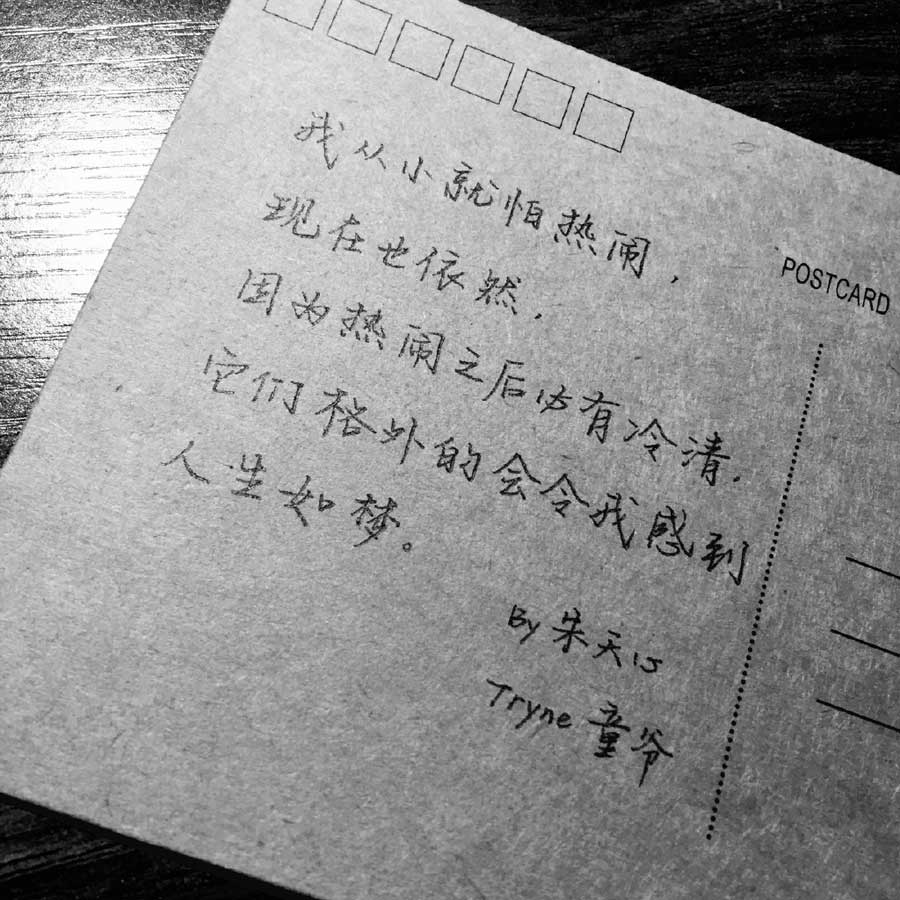 我从小就怕热闹，
现在也依然，
因为热闹之后必有冷清，
它们格外的会令我感到
人生如梦。
By 朱天心
Tryne 童爷
POSTCARD